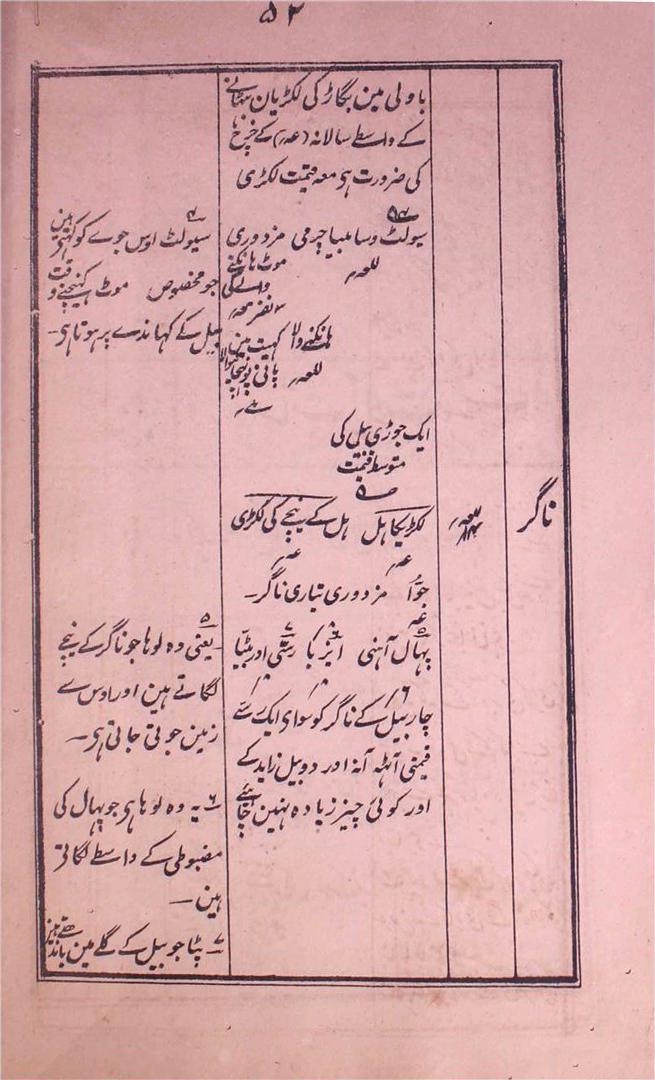 ۵۲
باولی مین بگاڑ کی لکڑیان بٹھانے
کے واسطے سالانہ (عہ/) کے خرچ
کی ضرورت ہی معہ قیمت لکڑی
سیولٹ وسا ملبیا چرمی مزدوری
موٹ ہانکنے
والے کی
۲ نفر
ہانکنے والا کہیت مین
پانی
ایک جوڑی بیل کی
متوسط قیمت
ناگر
لکڑیکا ہل ہل کے نیچے کی لکڑی
جوّا مزدوری تیاری ناگر۔
پہال آہنی رسّی اور پٹّیا
چار بیل کے ناگر کو سوای ایک
قیمتی آٹھہ آنہ اور دو بیل زاید کے
اور کوئی چیز زیادہ نہین چاہئے
۴ سیولٹ اوس جوے کو کہتے ہین
جو مخصوص موٹ کہنیچنے وقت
بیل کے کہاندے پر ہوتا ہی۔
۵ یعنی وہ لوہا جو ناگر کے نیچے
لگاتے ہین اور اوس سے
زمین جوتی جاتی ہی۔
۶ یہ وہ لوہا ہی جو پہال کی
مضبوطی کے واسطے لگاتی
ہین۔
۷ پٹا جو بیل کے گلے مین باندہتے ہین